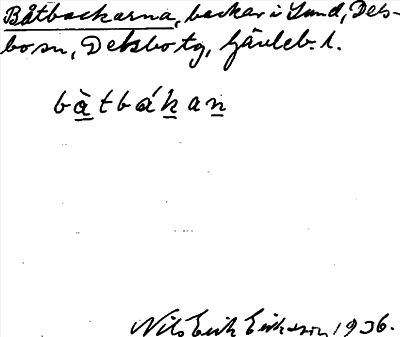 Båtbackarna, backar i Sund, Dels-
bo sn, Delsbo tg, Gävleb. l.
bàtbákan
Nils Erik Eriksson 1936.